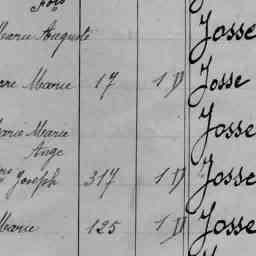 Marie Auguste Josse
Marie 17 1 D Josse
Marie Marie Josse
Ange
Joseph 317 1 D Josse
Marie 125 1 D Josse